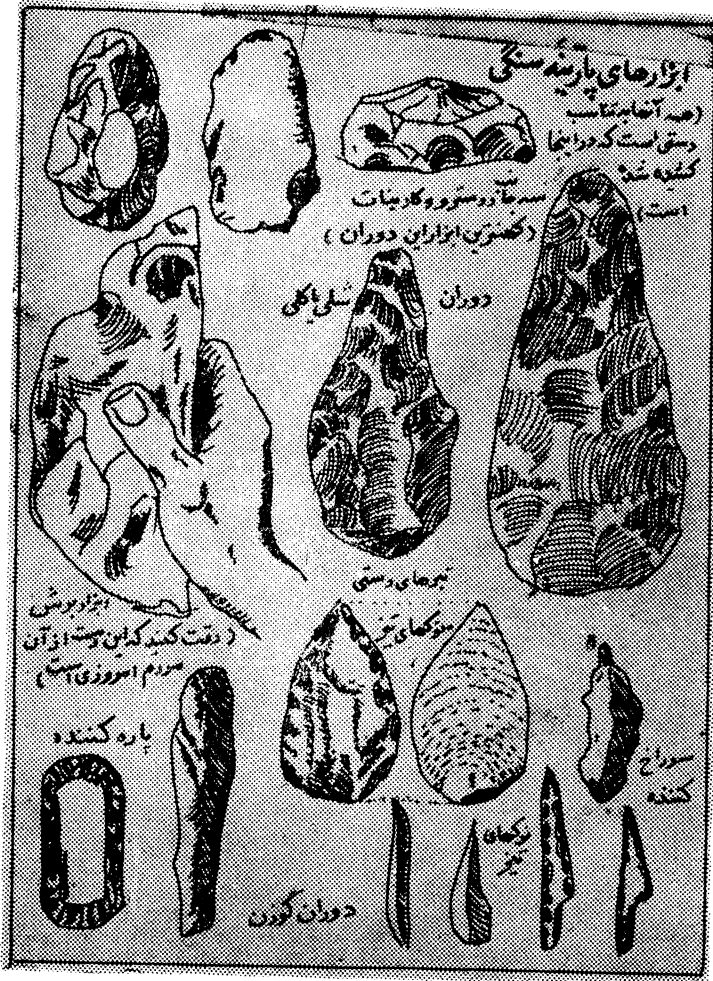 ابزارهای پارینه سنگی
(همه آنها به تناسب
دستی است که در اینجا
کشیده شده
است)
سه جانور دستی و
(کهنترین ابزار این دوران)
دوران
یا کلی
تبرهای دستی
ابزار برش
(دقت کنید که این دست از آن
مردم امروزی است)
نوکهای تیز
پاره کننده
سوراخ
کننده
نوکهای
تیز
دوران گوزن